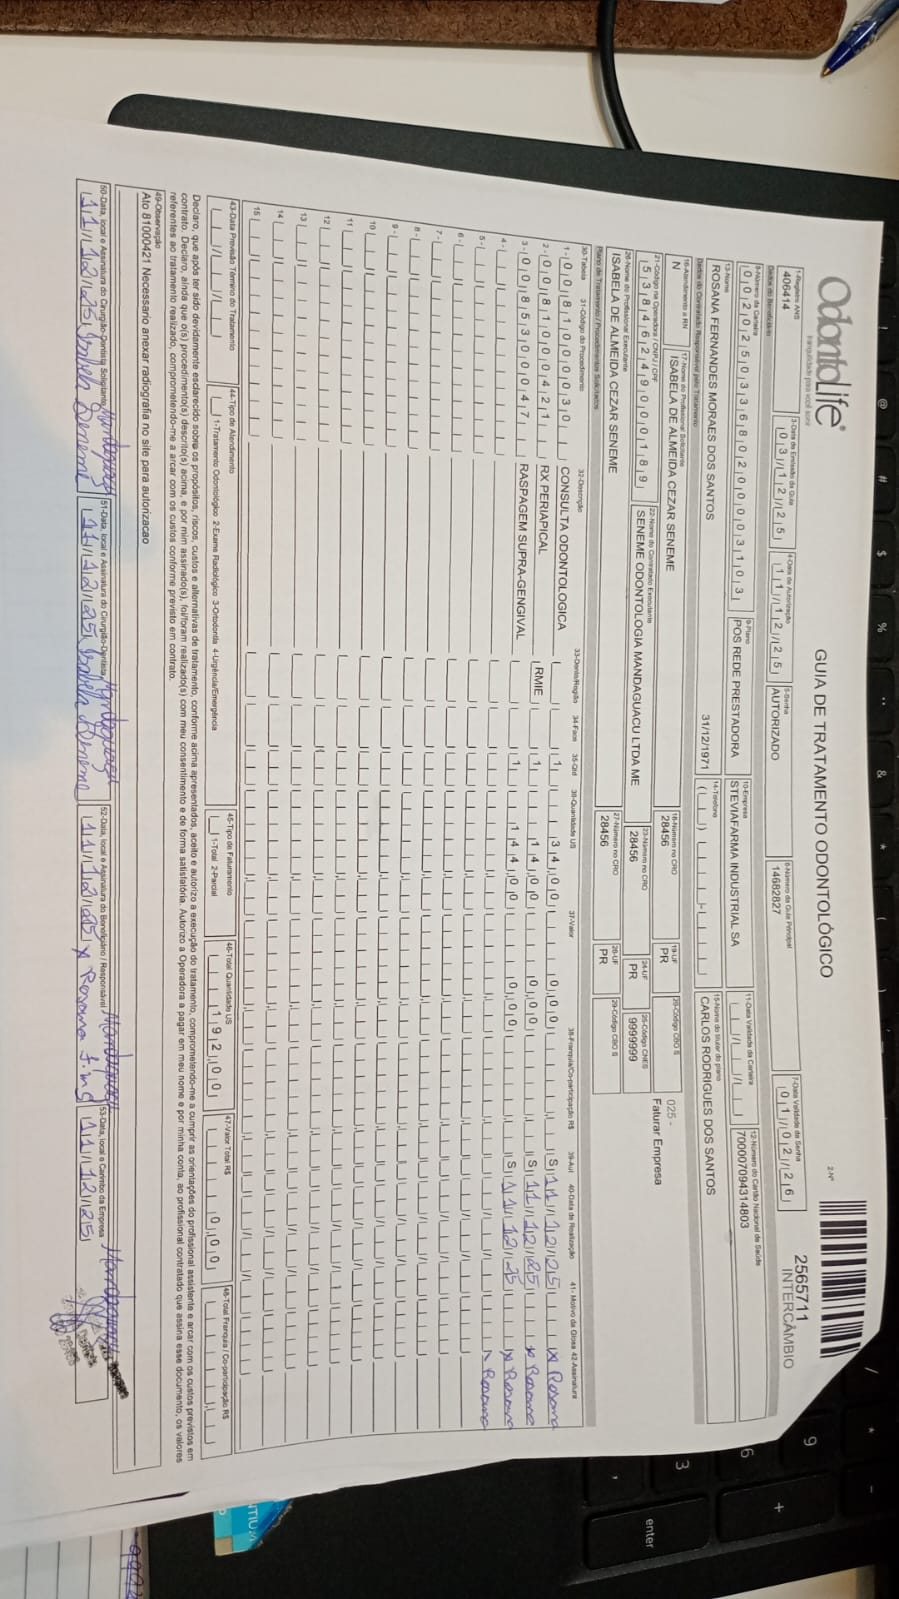 OdontoLife®
tranquilidade para você sorrir
GUIA DE TRATAMENTO ODONTOLÓGICO
2-Nº
2565711
INTERCÂMBIO
1-Registro ANS
406414
3-Data de Emissão da Guia
03/12/25
4-Data de Autorização
11/12/25
5-Senha
AUTORIZADO
6-Número da Guia Principal
14682827
7-Data Validade da Senha
01/02/26
Dados do Beneficiário
8-Número da Carteira
002025033680200003103
9-Plano
POS REDE PRESTADORA
10-Empresa
STEVIAFARMA INDUSTRIAL SA
11-Data Validade da Carteira
12-Número do Cartão Nacional de Saúde
700007094314803
13-Nome
ROSANA FERNANDES MORAES DOS SANTOS
31/12/1971
14-Telefone
15-Nome do titular do plano
CARLOS RODRIGUES DOS SANTOS
Dados do Contratado Responsável pelo Tratamento
16-Atendimento a RN
N
17-Nome do Profissional Solicitante
ISABELA DE ALMEIDA CEZAR SENEME
18-Número no CRO
28456
19-UF
PR
20-Código CBO S
025 -
Faturar Empresa
21-Código na Operadora / CNPJ / CPF
53846249000189
22-Nome do Contratado Executante
SENEME ODONTOLOGIA MANDAGUACU LTDA ME
23-Número no CRO
28456
24-UF
PR
25-Código CNES
9999999
26-Nome do Profissional Executante
ISABELA DE ALMEIDA CEZAR SENEME
27-Número no CRO
28456
28-UF
PR
29-Código CBO S
Plano de Tratamento / Procedimentos Solicitados
30-Tabela 31-Código do Procedimento 32-Descrição 33-Dente/Região 34-Face 35-Qtd 36-Quantidade US 37-Valor 38-Franquia/Co-participação R$ 39-Aut 40-Data de Realização 41- Motivo da Glosa 42-Assinatura
1 - 00 81000030 CONSULTA ODONTOLOGICA 1 34,00 0,00 S 11/12/25 x Rosana
2 - 00 81000421 RX PERIAPICAL RMIE 1 14,00 0,00 S 11/12/25 x Rosana
3 - 00 85300047 RASPAGEM SUPRA-GENGIVAL 1 144,00 0,00 S 11/12/25 x Rosana
4 - x Rosana
5 -
6 -
7 -
8 -
9 -
10
11
12
13
14
15
43-Data Previsão Término do Tratamento
44-Tipo de Atendimento
1-Tratamento Odontológico 2-Exame Radiológico 3-Ortodontia 4-Urgência/Emergência
45-Tipo de Faturamento
1-Total 2-Parcial
46-Total Quantidade US
192,00
47-Valor Total R$
0,00
48-Total Franquia / Co-participação R$
Declaro, que após ter sido devidamente esclarecido sobre os propósitos, riscos, custos e alternativas de tratamento, conforme acima apresentados, aceito e autorizo a execução do tratamento, comprometendo-me a cumprir as orientações do profissional assistente e arcar com os custos previstos em
contrato. Declaro, ainda que o(s) procedimento(s) descrito(s) acima, e por mim assinado(s), foi/foram realizado(s) com meu consentimento e de forma satisfatória. Autorizo a Operadora a pagar em meu nome e por minha conta, ao profissional contratado que assina esse documento, os valores
referentes ao tratamento realizado, comprometendo-me a arcar com os custos conforme previsto em contrato.
49-Observação
Ato 81000421 Necessario anexar radiografia no site para autorizacao
50-Data, local e Assinatura do Cirurgião-Dentista Solicitante
11/12/25 Isabela Seneme
51-Data, local e Assinatura do Cirurgião-Dentista
11/12/25 Isabela Seneme
52-Data, local e Assinatura do Beneficiário / Responsável
11/12/25 x Rosana
53-Data, local e Carimbo da Empresa
11/12/25